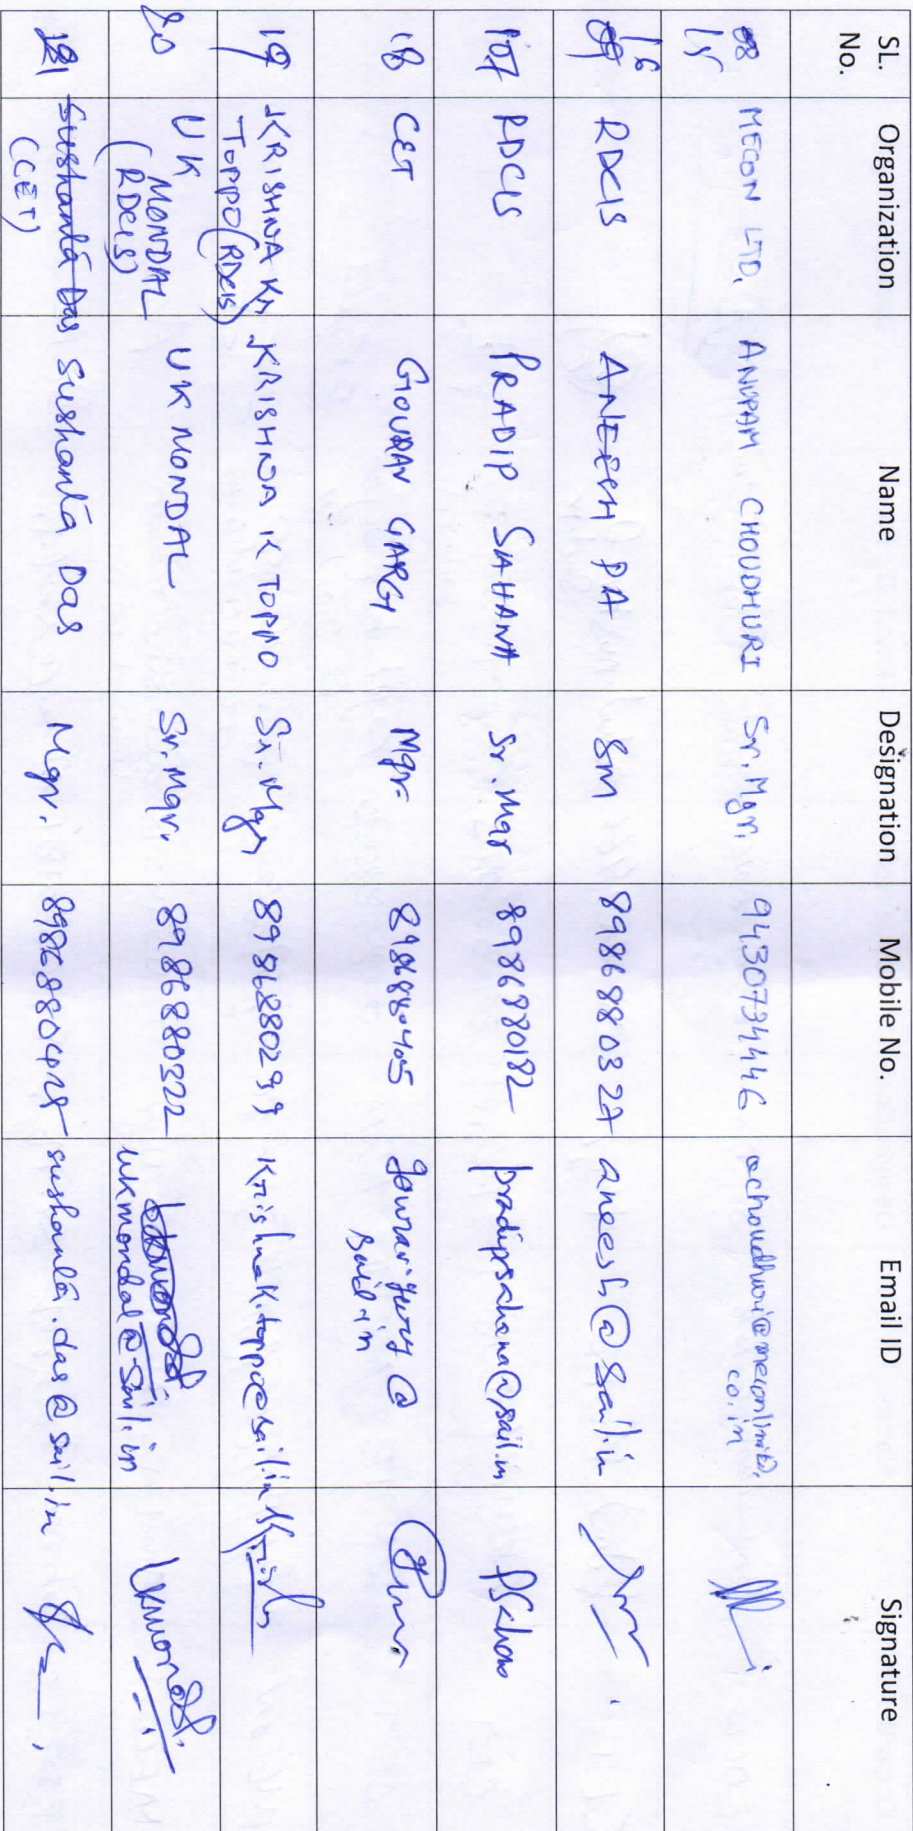 SL. No. Organization Name Designation Mobile No. Email ID Signature
15 MECON LTD. ANUPAM CHOUDHURI Sr. Mgr. 9430734446 achoudhuri@meconlimited.co.in
16 RDCIS ANEESH PA SM 8986880327 aneesh@sail.in
17 RDCIS PRADIP SAHANA Sr. Mgr 8986880182 pradipsahana@sail.in
18 CET GOURAV GARG Mgr 8986880405 gourav.garg@sail.in
19 KRISHNA Kr TOPPO (RDCIS) KRISHNA K TOPPO Sr. Mgr 8986880299 krishnak.toppo@sail.in
20 UK MONDAL (RDCIS) UK MONDAL Sr. Mgr. 8986880322 ukmondal@sail.in ukmondal
21 Sushanta Das (CET) Sushanta Das Mgr. 8986880428 sushanta.das@sail.in